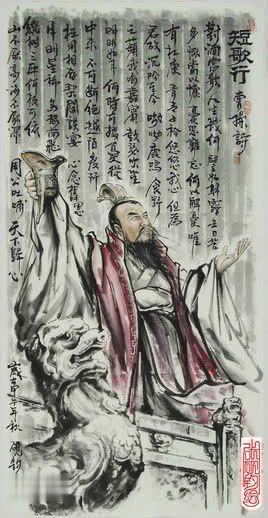 短歌行
曹操詩
對酒當歌人生幾何譬如朝露去日苦
多慨當以慷憂思難忘何以解憂唯
有杜康青青子衿悠悠我心但為
君故沉吟至今呦呦鹿鳴食野
之蘋我有嘉賓鼓瑟吹笙
明明如月何時可掇憂從
中來不可斷絕越陌度阡
枉用相存契闊談宴
心念舊恩
月明星稀烏鵲南飛
繞樹三匝何枝可依
山不厭高海不厭深
周公吐哺天下歸心
甲午年秋硯鈞